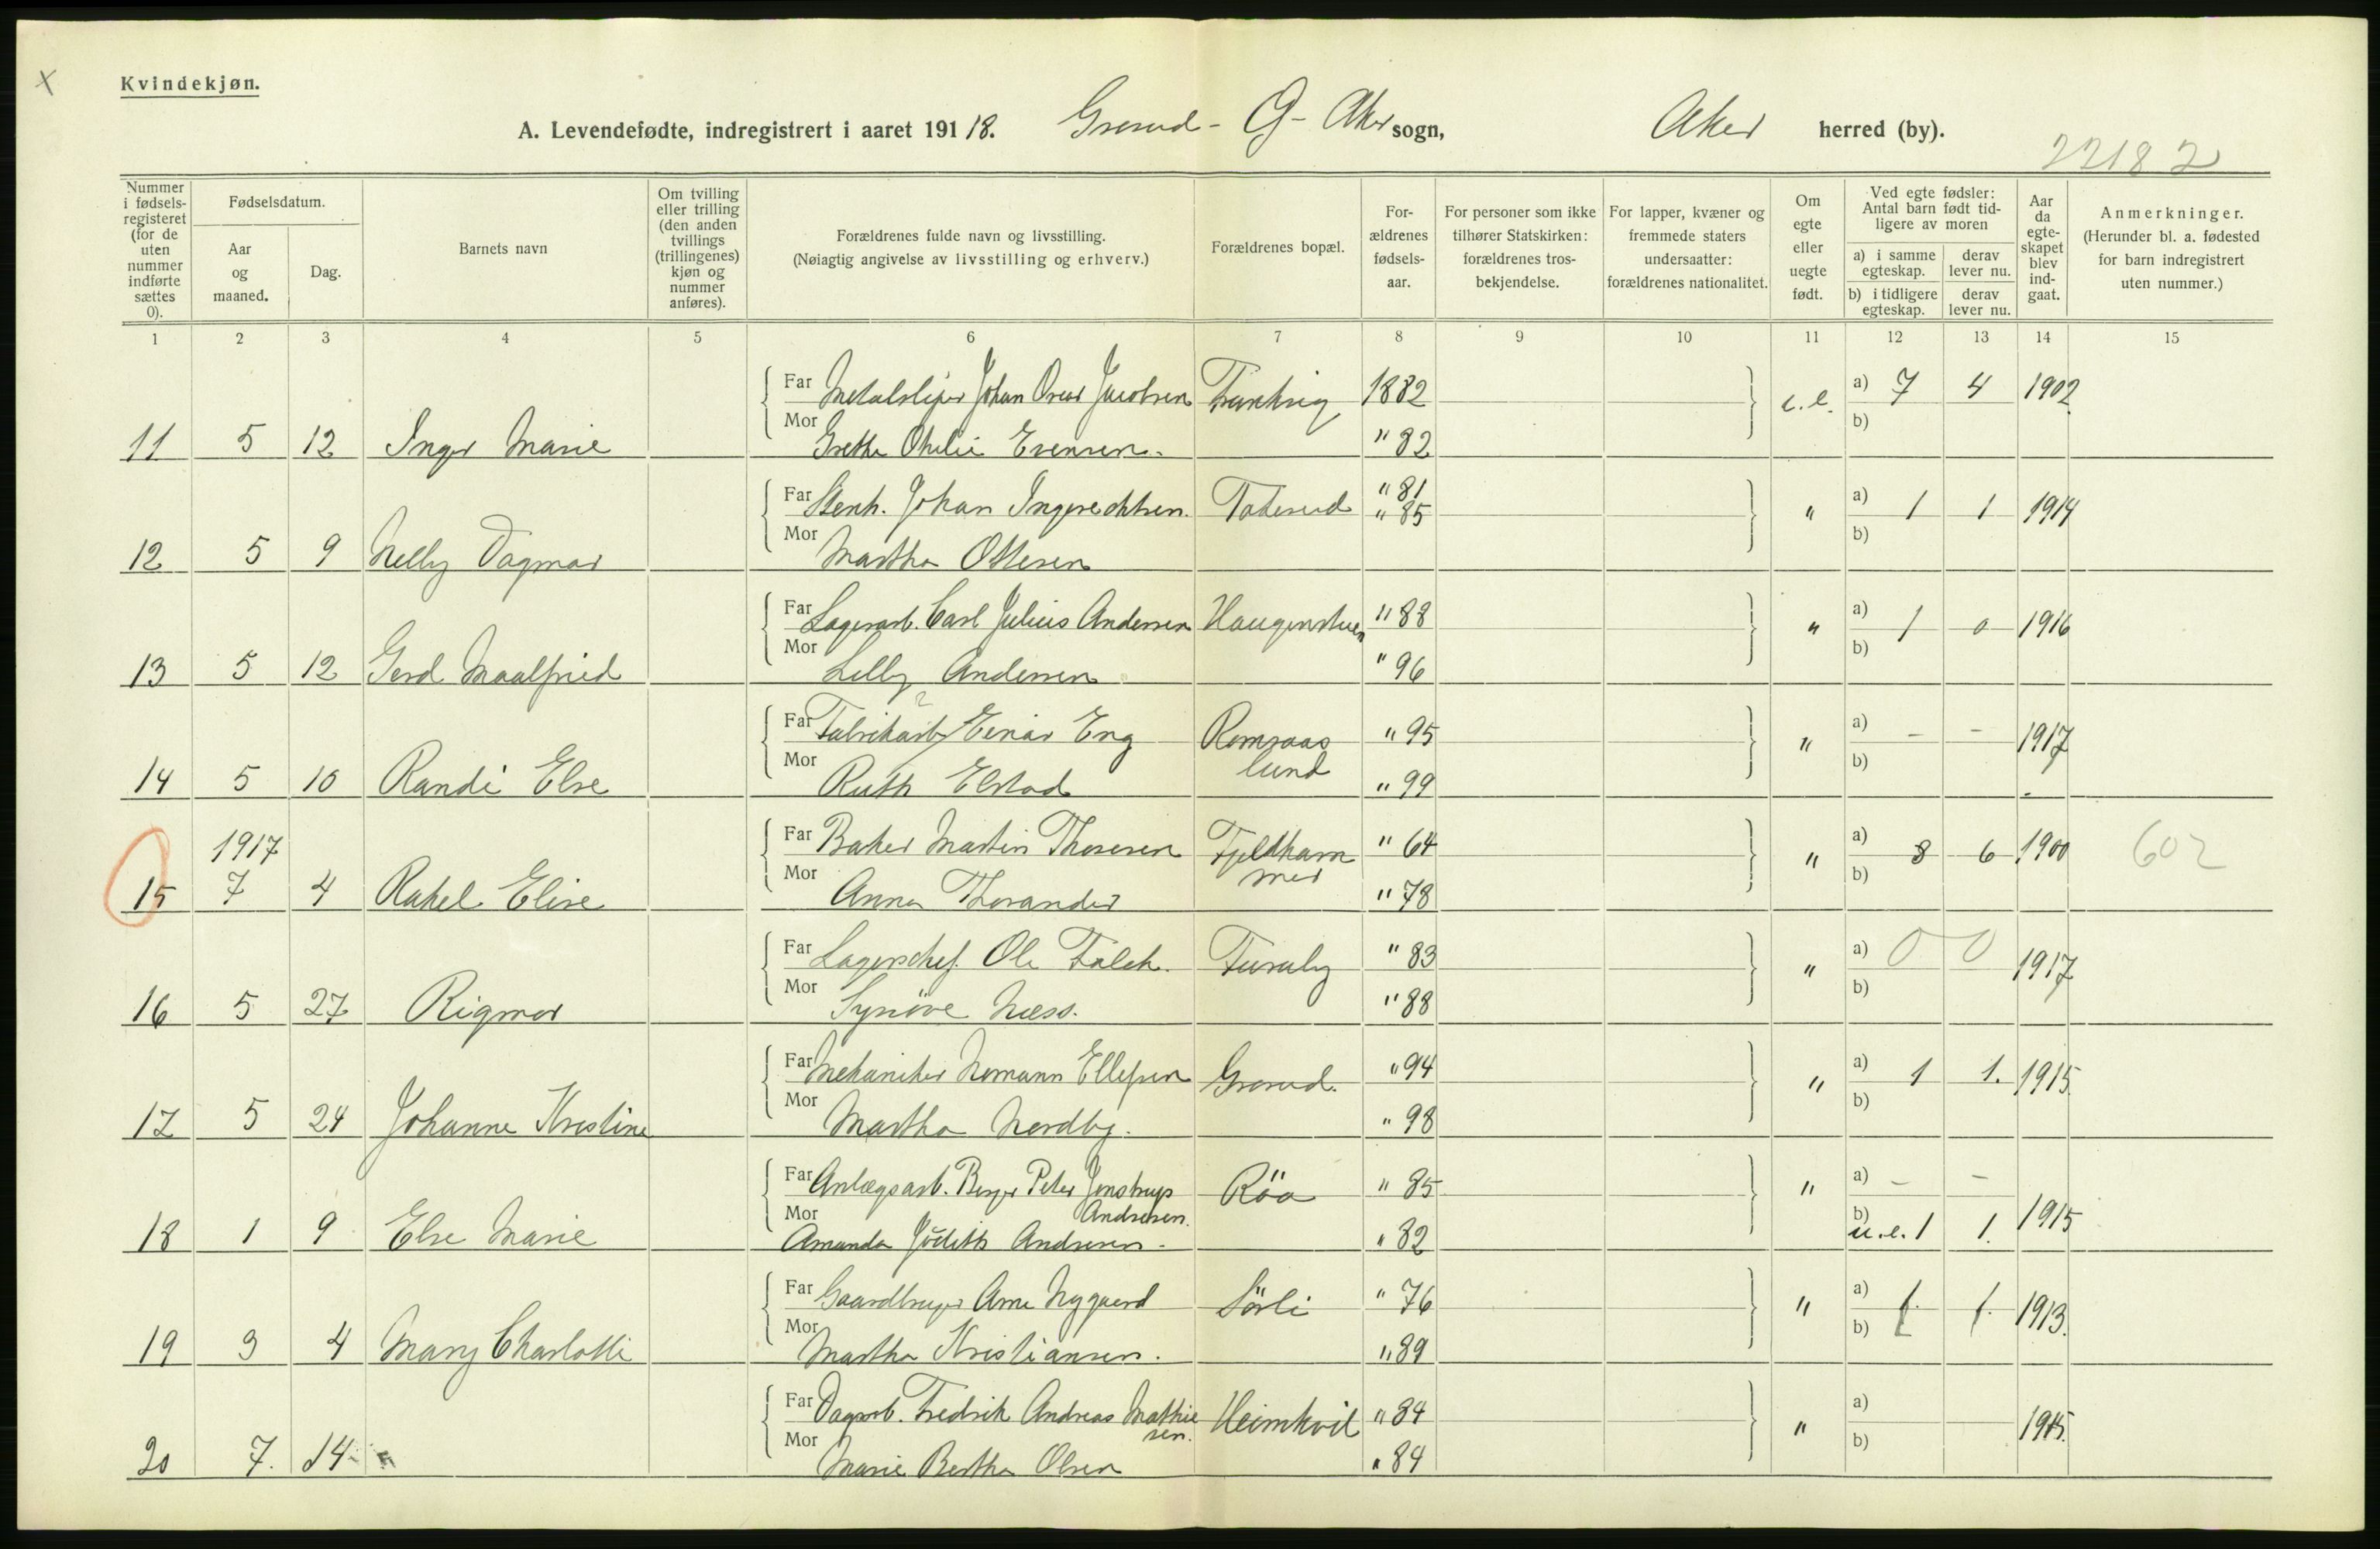 Kvindekjøn.
A. Levendefødte, indregistrert i aaret 1918. Grorud - Ø - Aker sogn, Aker herred (by).
22182
Nummer i fødsels-registeret (for de uten nummer indførte sættes 0).
Fødselsdatum.
Aar og maaned.
Dag.
Barnets navn
Om tvilling eller trilling (den anden tvillings (trillingenes) kjøn og nummer anføres).
Forældrenes fulde navn og livsstilling.
(Nøiagtig angivelse av livsstilling og erhverv.)
Forældrenes bopæl.
For-ældrenes fødsels-aar.
For personer som ikke tilhører Statskirken: forældrenes tros-bekjendelse.
For lapper, kvæner og fremmede staters undersaatter: forældrenes nationalitet.
Om egte eller uegte født.
Ved egte fødsler: Antal barn født tid-ligere av moren
a) i samme egteskap.
derav lever nu.
b) i tidligere egteskap.
derav lever nu.
Aar da egte-skapet blev ind-gaat.
Anmerkninger.
(Herunder bl. a. fødested for barn indregistrert uten nummer.)
1 2 3 4 5 6 7 8 9 10 11 12 13 14 15
Far Metalsliper Johan Oscar Jacobsen 1882 a) 7 4 1902
11 5 12 Inger Marie Mor Grethe Evensen. " 82 b)
Far Johan Ingbrechtsen. " 81 " a) 1 1 1914
" 85
12 5 9 Nelly Dagmar Mor Martha Ottesen b)
Far Lagerarb. Carl Julius Andersen Haugenstuen " 88 " a) 1 0 1916
13 5 12 Gerd Maalfrid Mor Lelly Andersen " 96 b)
Far Fabrikarb. Einar Eng Romsaas " 95 " a) - - 1917
lund
14 5 10 Randi Else Mor Ruth Elstad " 99 b)
1917 Far Baker Martin Thoresen Fjeldham " 64 " a) 8 6 1900 602
mer
15 7 4 Rakel Elise Mor Anna Thorander " 78 b)
Far Lagerchef. Ole Falck. Furuly " 83 " a) 0 0 1917
16 5 27 Rigmor Mor Synöve Næss. " 88 b)
Far Mekaniker Normann Ellefsen Grorud. " 94 " a) 1 1. 1915
17 5 24 Johanne Kristine Mor Martha Nordby. " 98 b)
Far Anlægsarb. Birger Peter Jonstrup Röa " 85 " a) - -
Andresen.
18 1 9 Else Marie Mor Amanda Judith Andresen - " 82 b) u.e. 1 1. 1915
Far Gaardbruger Arne Nygaard Sörli " 76 " a) 1. 1. 1913.
19 3 4 Mary Charlotte Mor Martha Kristiansen. " 89 b)
Far Dagarb. Fredrik Andreas Mathie Heimkvil " 84 " a) 1915.
sen.
20 7. 14 Mor Marie Berthe Olsen " 84 b)